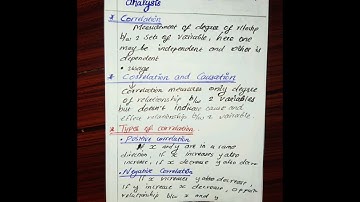 analysis
* Correlation
Measurement of degree of r/ship
b/w 2 sets of variable, here one
may be independent and other is
dependent
* Correlation and Causation
Correlation measures only degree
of relationship b/w 2 variables
but doesn't indicate cause and
effect relationship b/w 2 variable
* Types of correlation
• Positive correlation
If x and y are in a same
direction, if x increases y also
increase, if x decrease y also
• Negative Correlation
If x increases y also decrease,
if y increase x decrease,
relationship b/w x and y